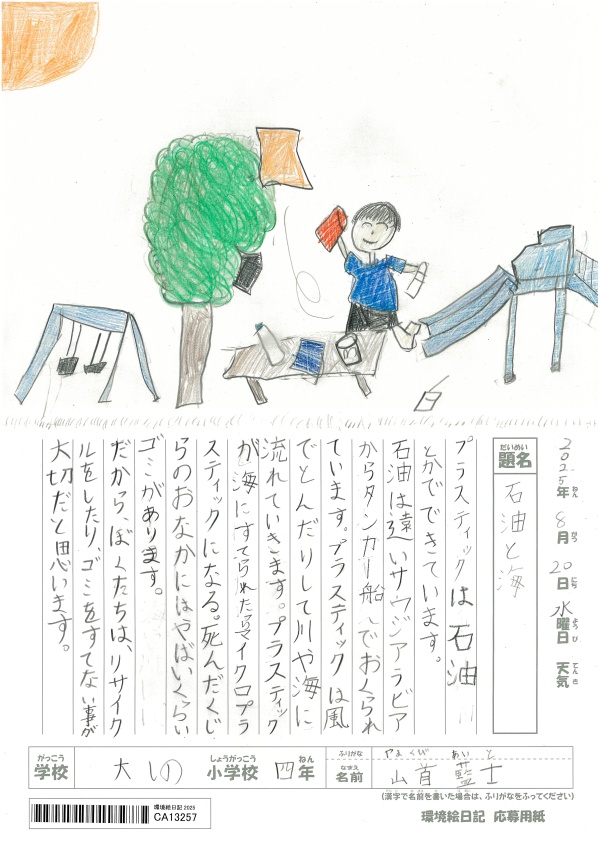 2025年 8月 20日 水曜日 天気
ねん がつ にち ようび てんき
だいめい
題名 石油と海
プラスティックは石油
とかでできています。
石油は遠いサウジアラビア
からタンカー船でおくられ
ています。プラスティックは風
でとんだりして川や海に
流れていきます。プラスティック
が海にすてられたらマイクロプラ
スティックになる。死んだくじ
らのおなかにはやばいくらい
ゴミがあります。
だから、ぼくたちは、リサイク
ルをしたり、ゴミをすてない事が
大切だと思います。
がっこう しょうがっこう ねん ふりがな やまくび あいと
学校 大しの 小学校 四年 なまえ 名前 山首 藍士
(漢字で名前を書いた場合は、ふりがなをふってください)
環境絵日記 2025
CA13257
環境絵日記 応募用紙